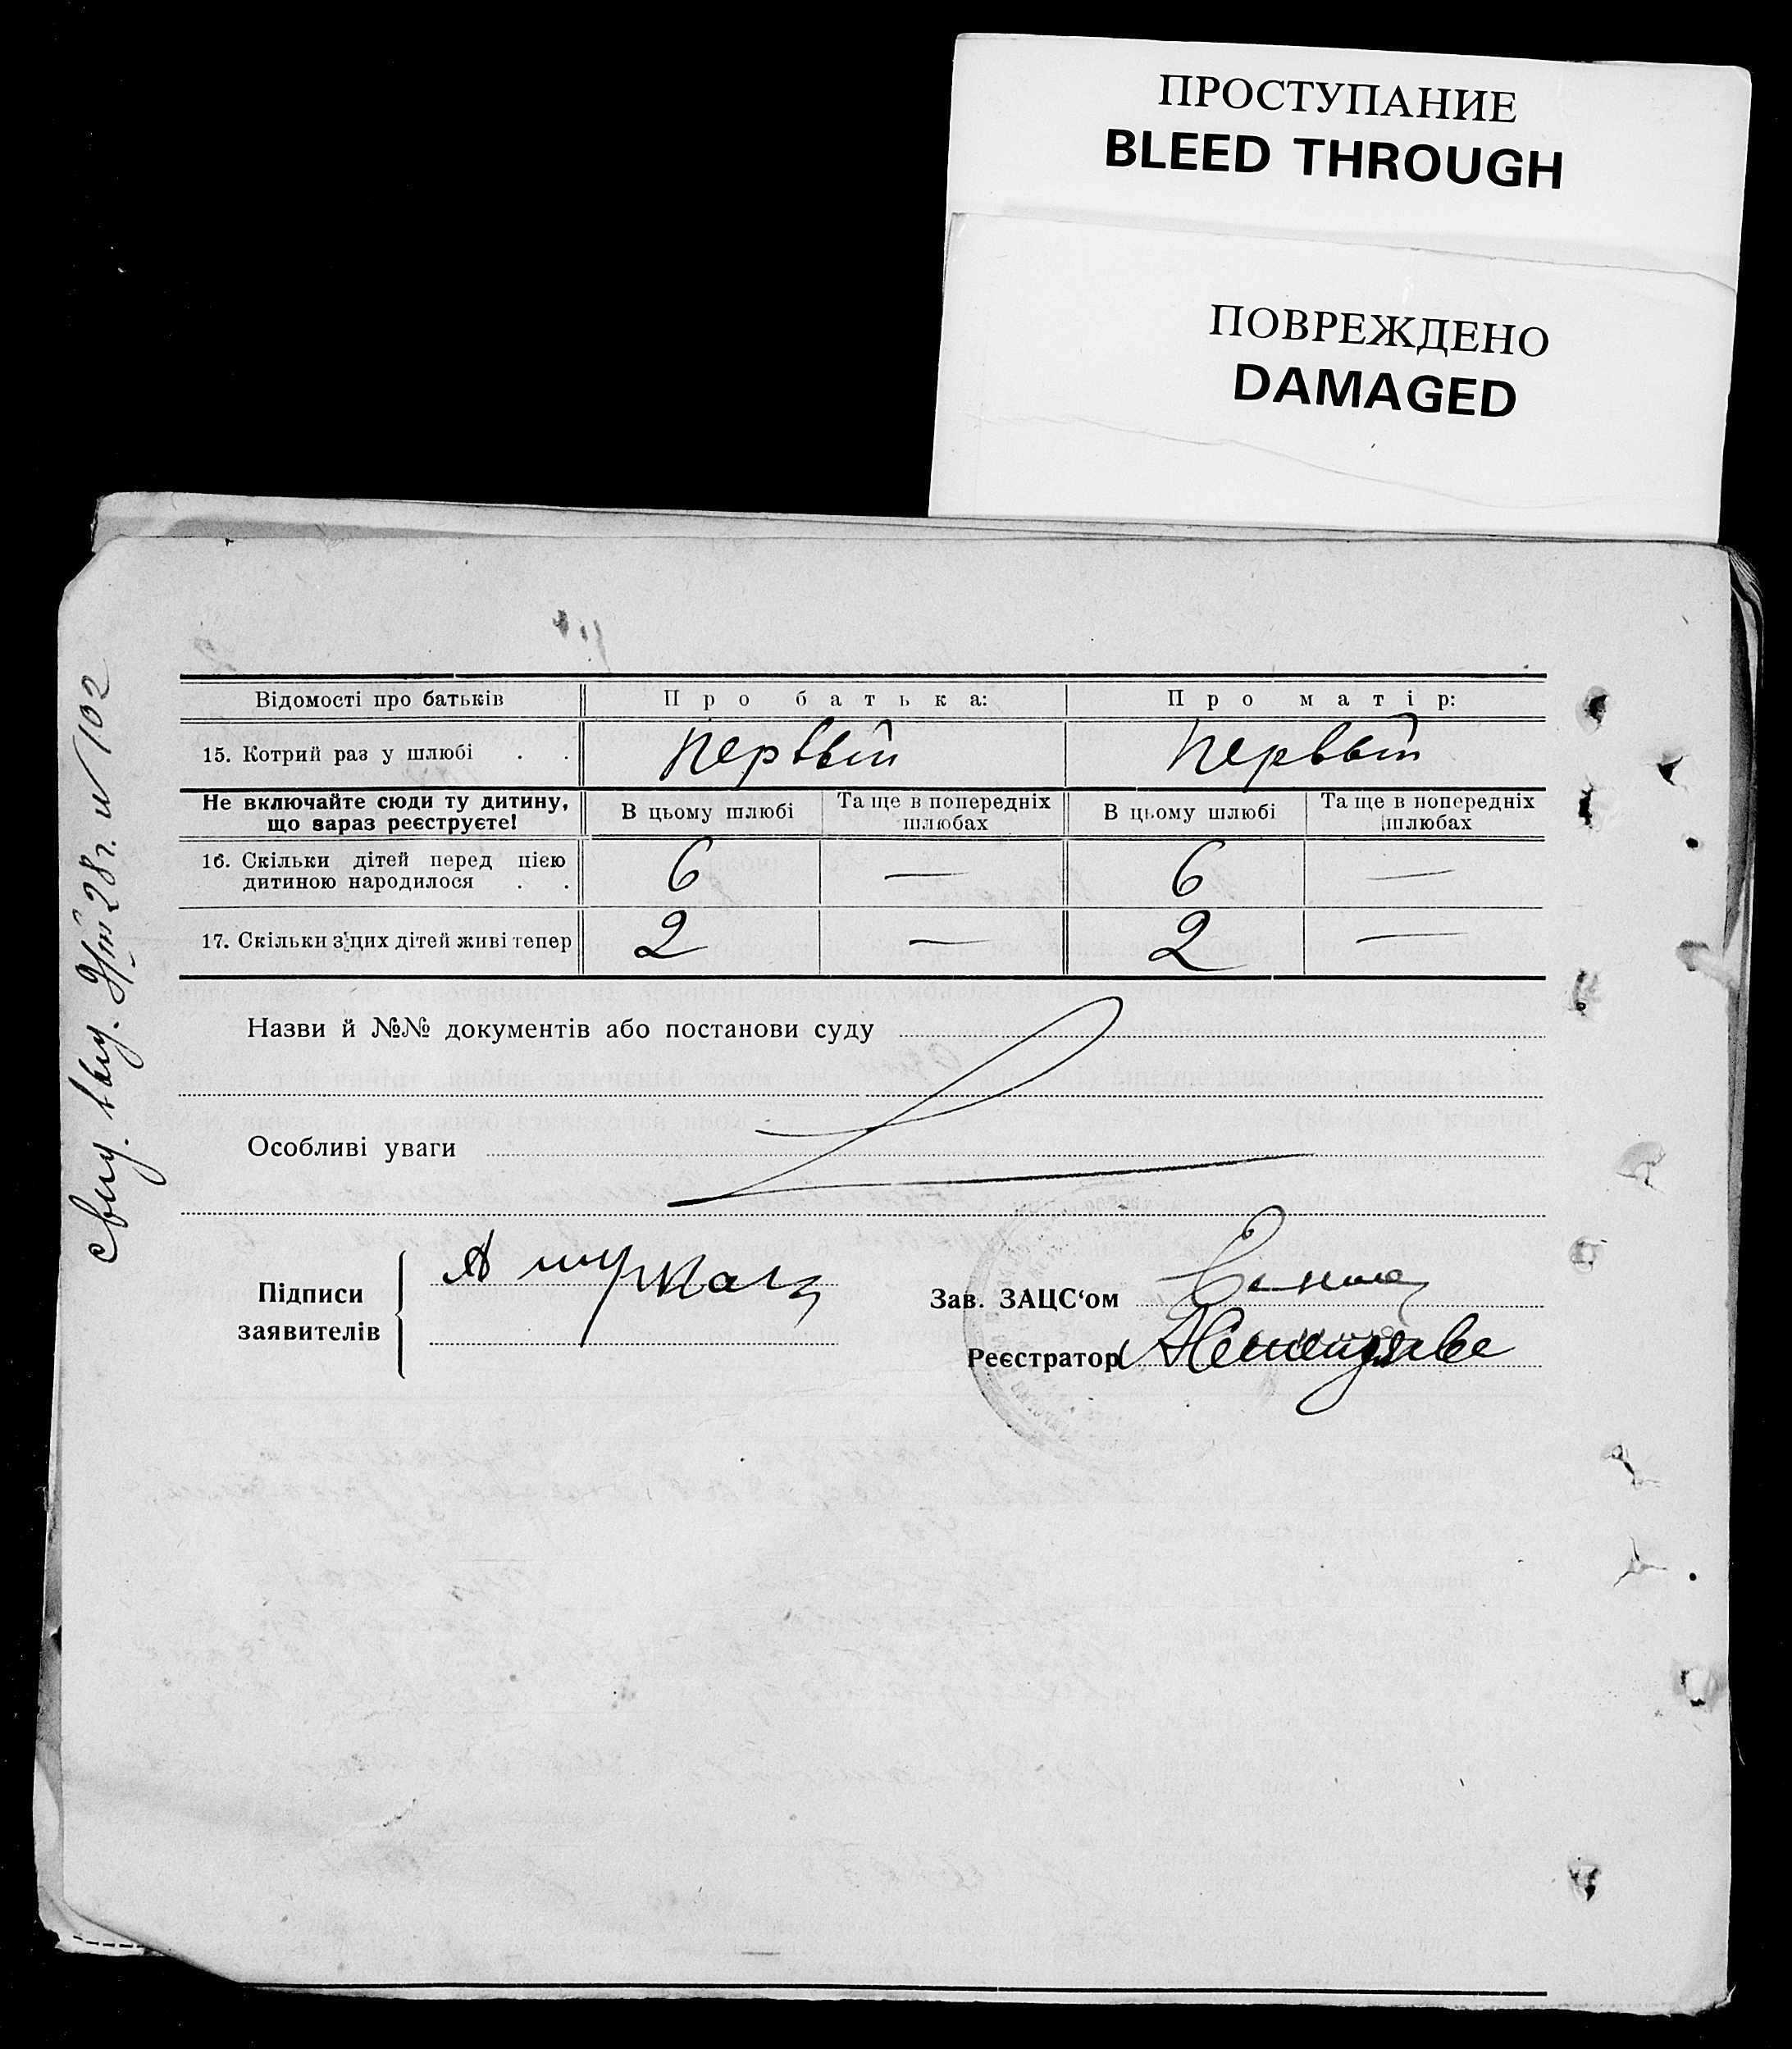 ПРОСТУПАНИЕ
BLEED THROUGH
ПОВРЕЖДЕНО
DAMAGED
Відомості про батьків Про батька: Про матір:
15. Котрий раз у шлюбі . . первый первый
Не включайте сюди ту дитину, що зараз реєструєте! В цьому шлюбі Та ще в попередніх шлюбах В цьому шлюбі Та ще в попередніх шлюбах
16. Скільки дітей перед цією дитиною народилося . . 6 — 6 —
17. Скільки з цих дітей живі тепер 2 — 2 —
Назви й №№ документів або постанови суду
Особливі уваги
Підписи
заявителів
Зав. ЗАЦС‘ом
Реєстратор
28 г. № 102